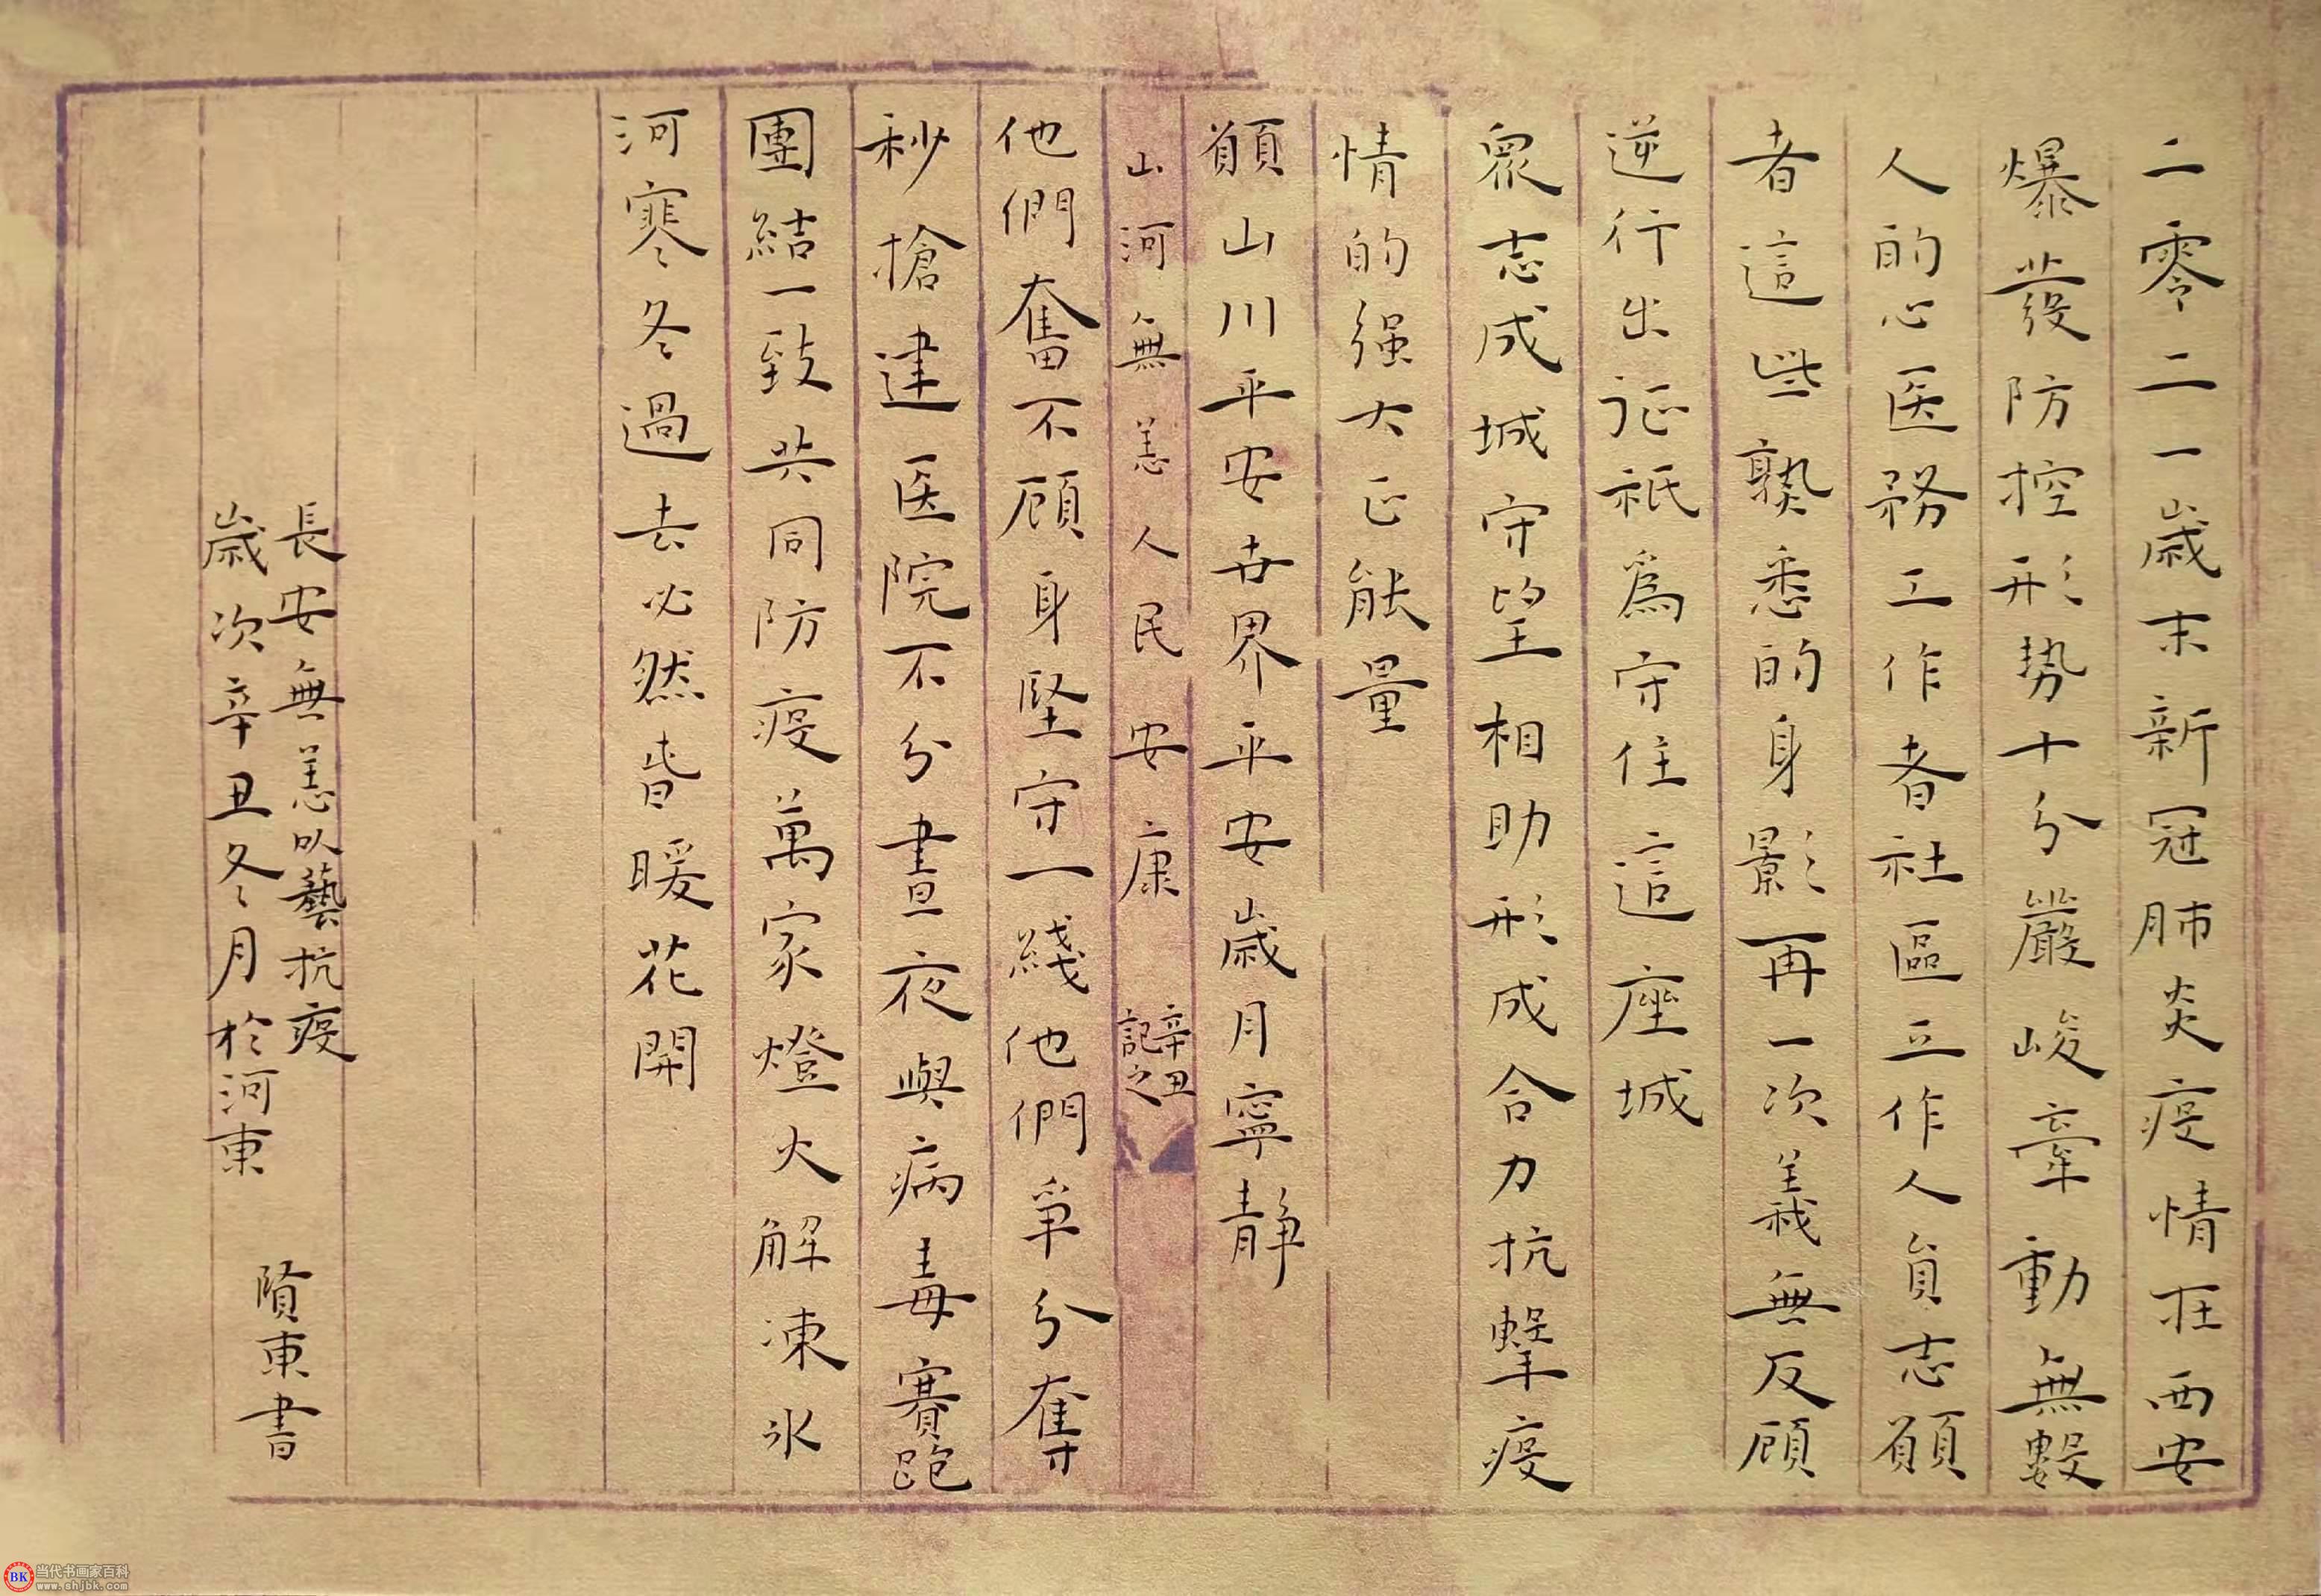 二零二一歲末新冠肺炎疫情在西安
爆發防控形势十分嚴峻牽動無數
人的心医務工作者社區工作人員志願
者這些熟悉的身影再一次義無反顧
逆行出征祇為守住這座城
眾志成城守望相助形成合力抗擊疫
情的强大正能量
願山川平安世界平安歲月寧静
山河無恙人民安康 辛丑
記之
他們奮不顧身堅守一綫他們爭分奪
秒搶建医院不分晝夜與病毒賽跑
團結一致共同防疫萬家燈火解凍冰
河寒冬過去必然春暖花開
長安無恙以藝抗疫
歲次辛丑冬月於河東
賢東書
BK 当代书画家百科
www.shjbk.com